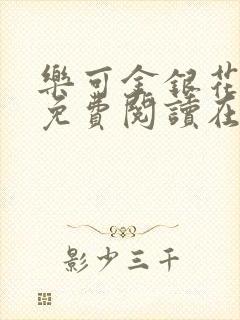 樂可金銀花
免費閱讀在
影少三千